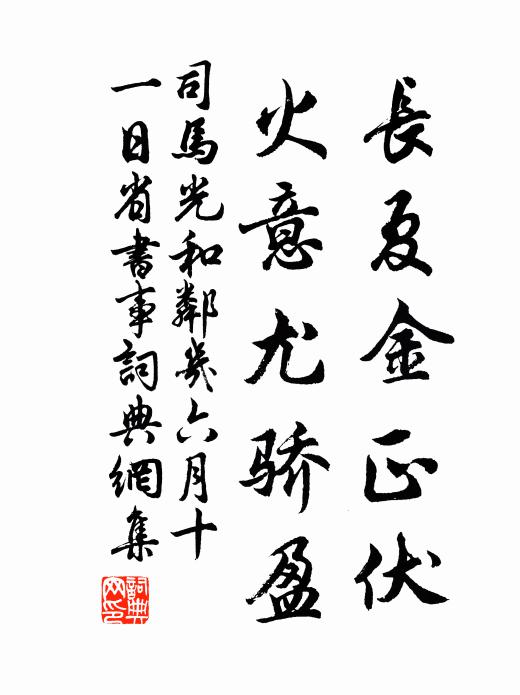 長夏金正伏
火意尤骄盈
司馬光和鄰幾六月十
一日省書事詞典網集
詞典网印